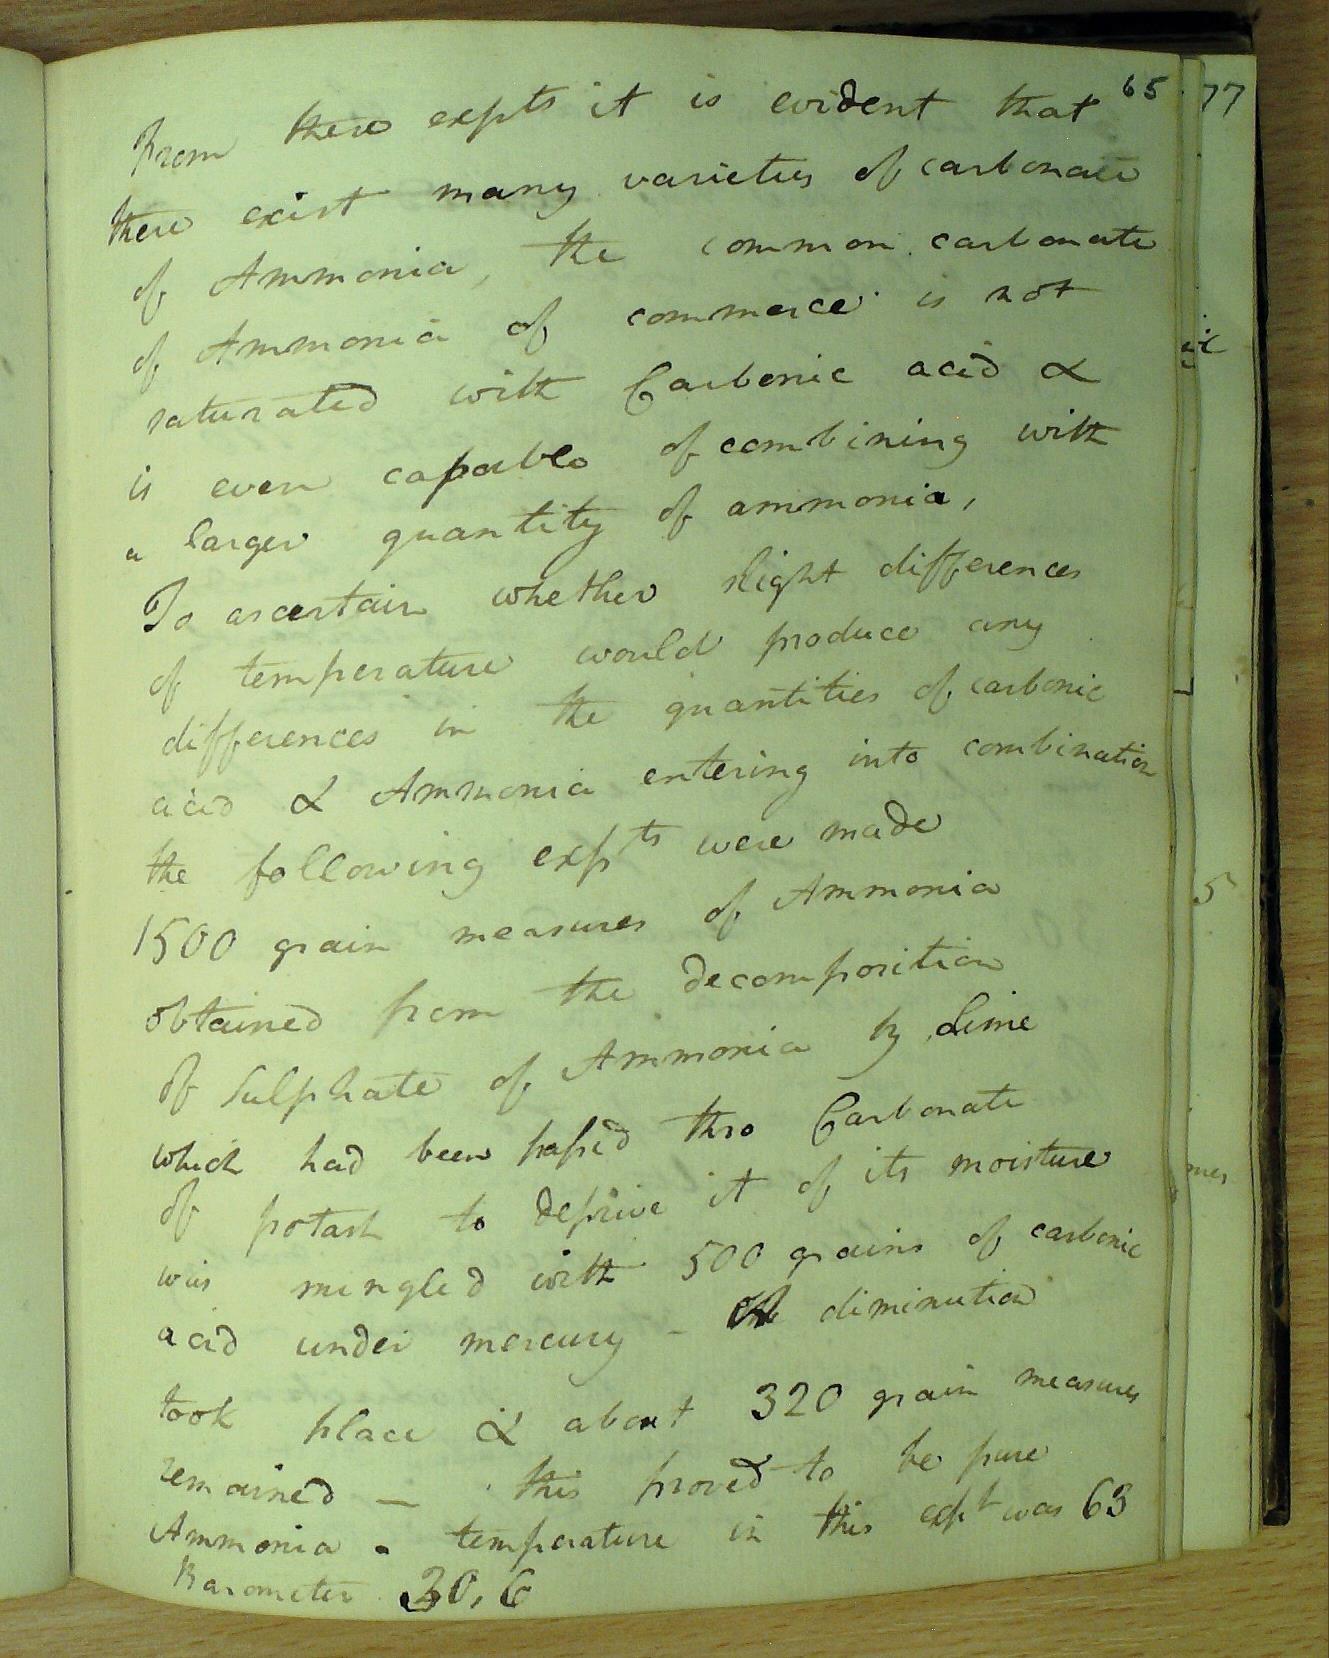 65
77
From these expts it is evident that
there exist many varieties of carbonate
of Ammonia, the common carbonate
of Ammonia of commerce is not
saturated with Carbonic acid &
is even capable of combining with
a larger quantity of ammonia,
To ascertain whether slight differences
of temperature would produce any
differences in the quantities of carbonic
acid & Ammonia entering into combination
the following expts were made
1500 grain measures of Ammonia
obtained from the decomposition
of Sulphate of Ammonia by Lime
which had been passed thro Carbonate
of potash to deprive it of its moisture
was mingled with 500 grains of carbonic
acid under mercury – diminution
took place & about 320 grain measures
remained — this proved to be pure
Ammonia . temperature in this expt was 63
Barometer 30,6
5
mes